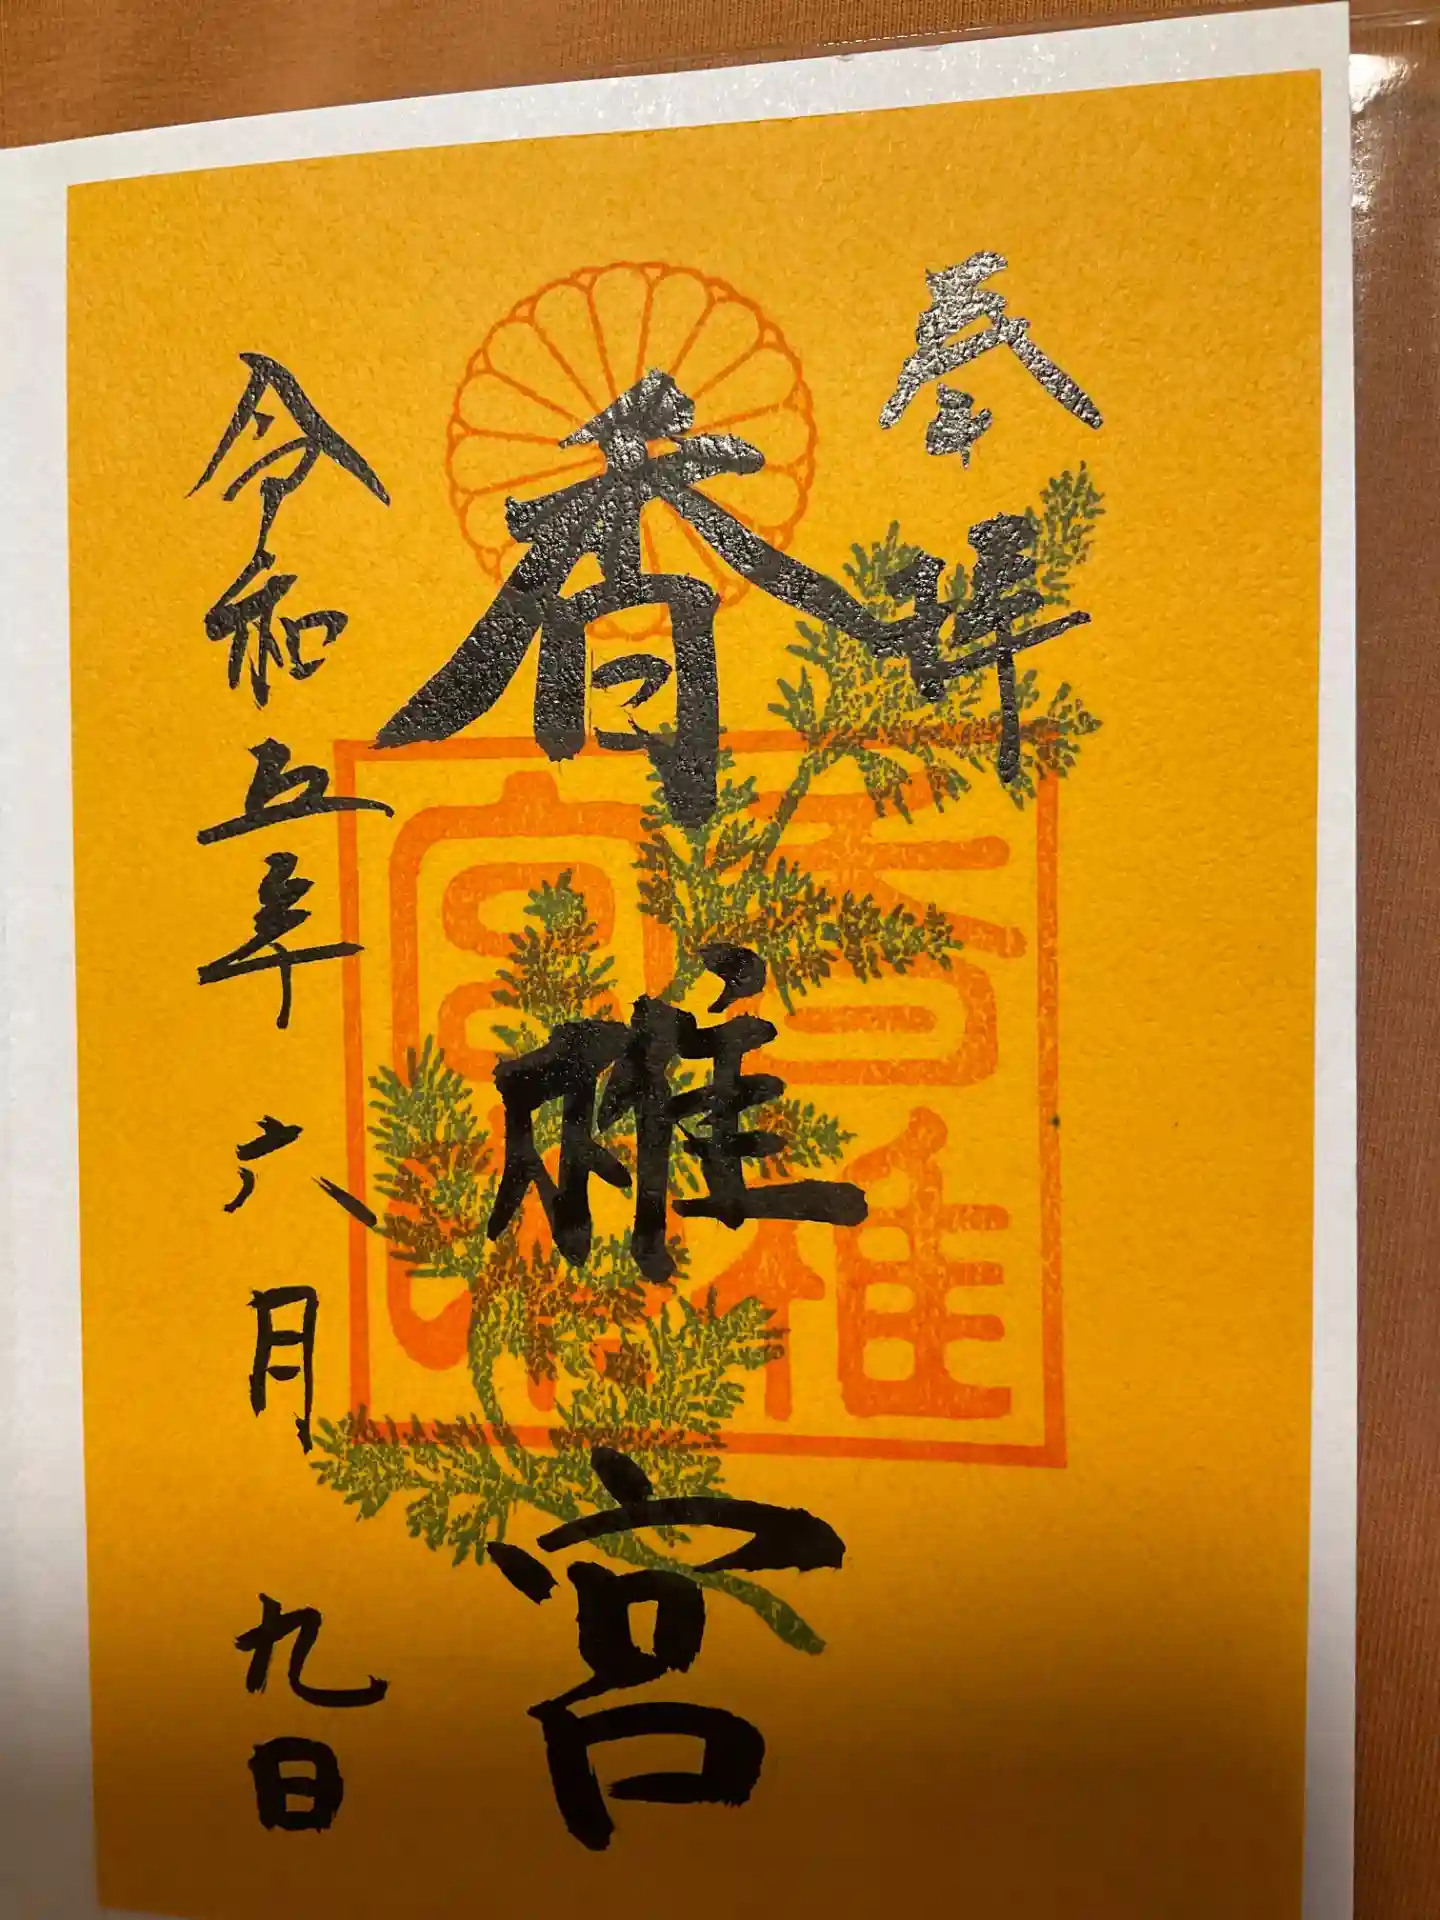 奉拝
香椎宮
令和五年六月九日
香椎
宮印